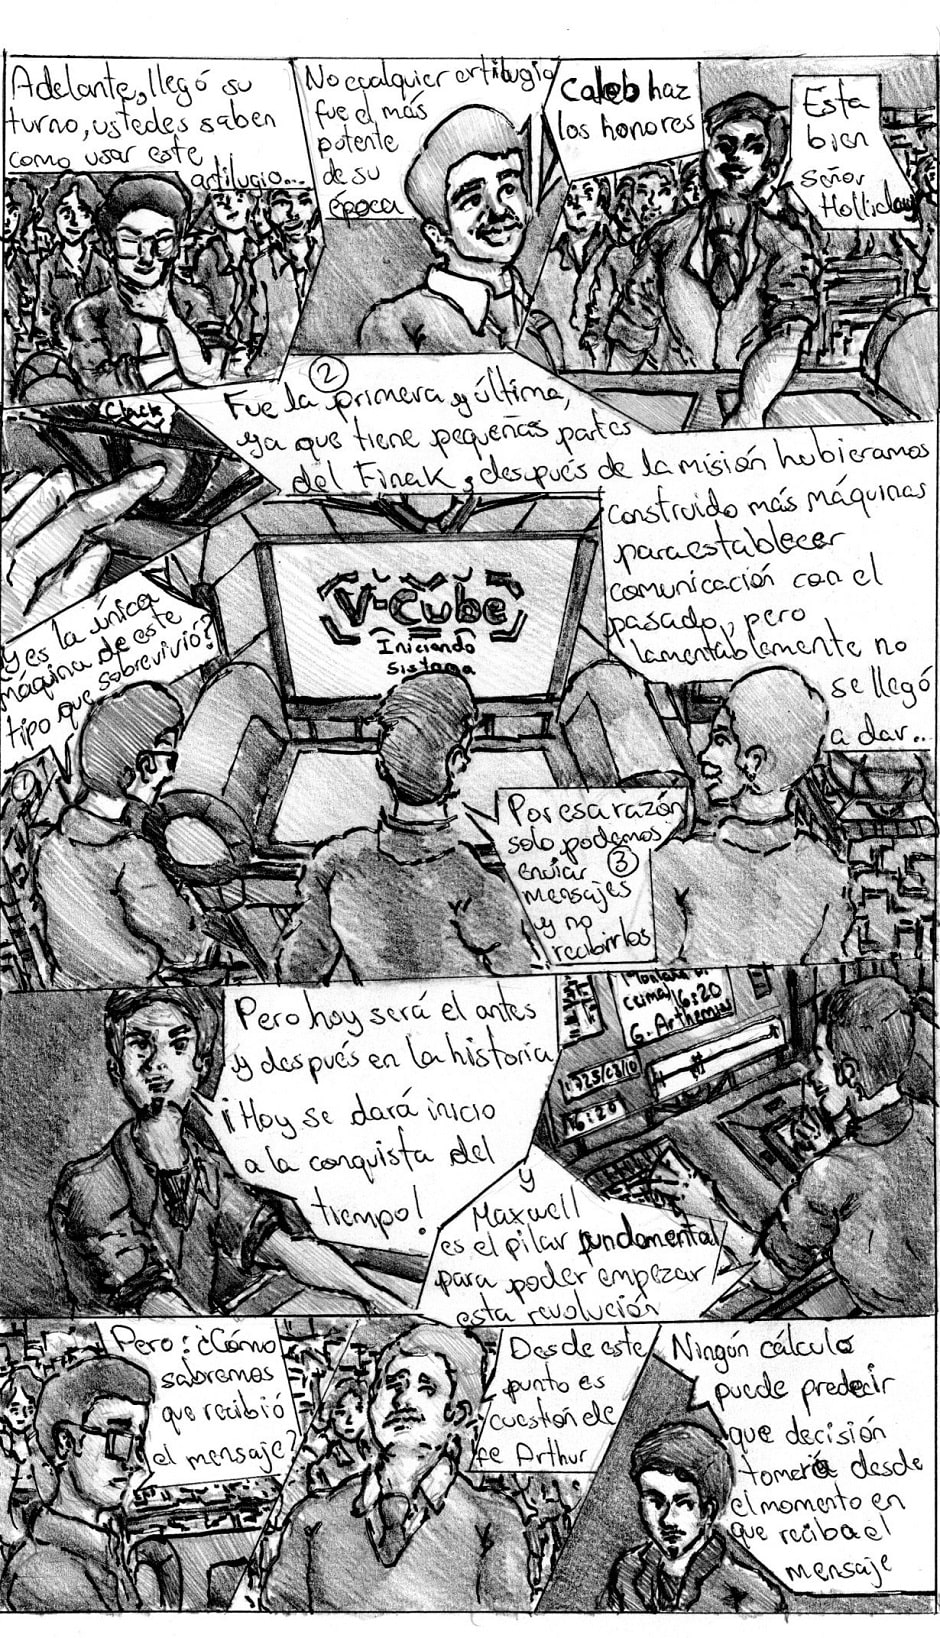 Adelante, llegó su
turno, ustedes saben
como usar este
artilugio...
No cualquier artilugio
fue el más
potente
de su
época
Caleb haz
los honores
Esta
bien
señor
Holliday
Clack
2
Fue la primera y última,
ya que tiene pequeñas partes
del Finak, después de la misión hubieramos
construido más máquinas
para establecer
comunicación con el
pasado, pero
lamentablemente no
se llegó
a dar..
Y es la única
máquina de este
tipo que sobrevivió?
1
V-Cube
Iniciando
Sistema
Por esa razón
solo podemos
enviar 3
mensajes
y no
recibirlos
Pero hoy será el antes
y después en la historia
¡Hoy se dará inicio
a la conquista del
tiempo!
16:20
G. Arthemius
16:20
y
Maxwell
es el pilar fundamental
para poder empezar
esta revolución
Pero ¿Cómo
sabremos
que recibió
el mensaje?
Desde este
punto es
cuestión de
fe Arthur
Ningún cálculo
puede predecir
que decisión
tomará desde
el momento en
que reciba el
mensaje